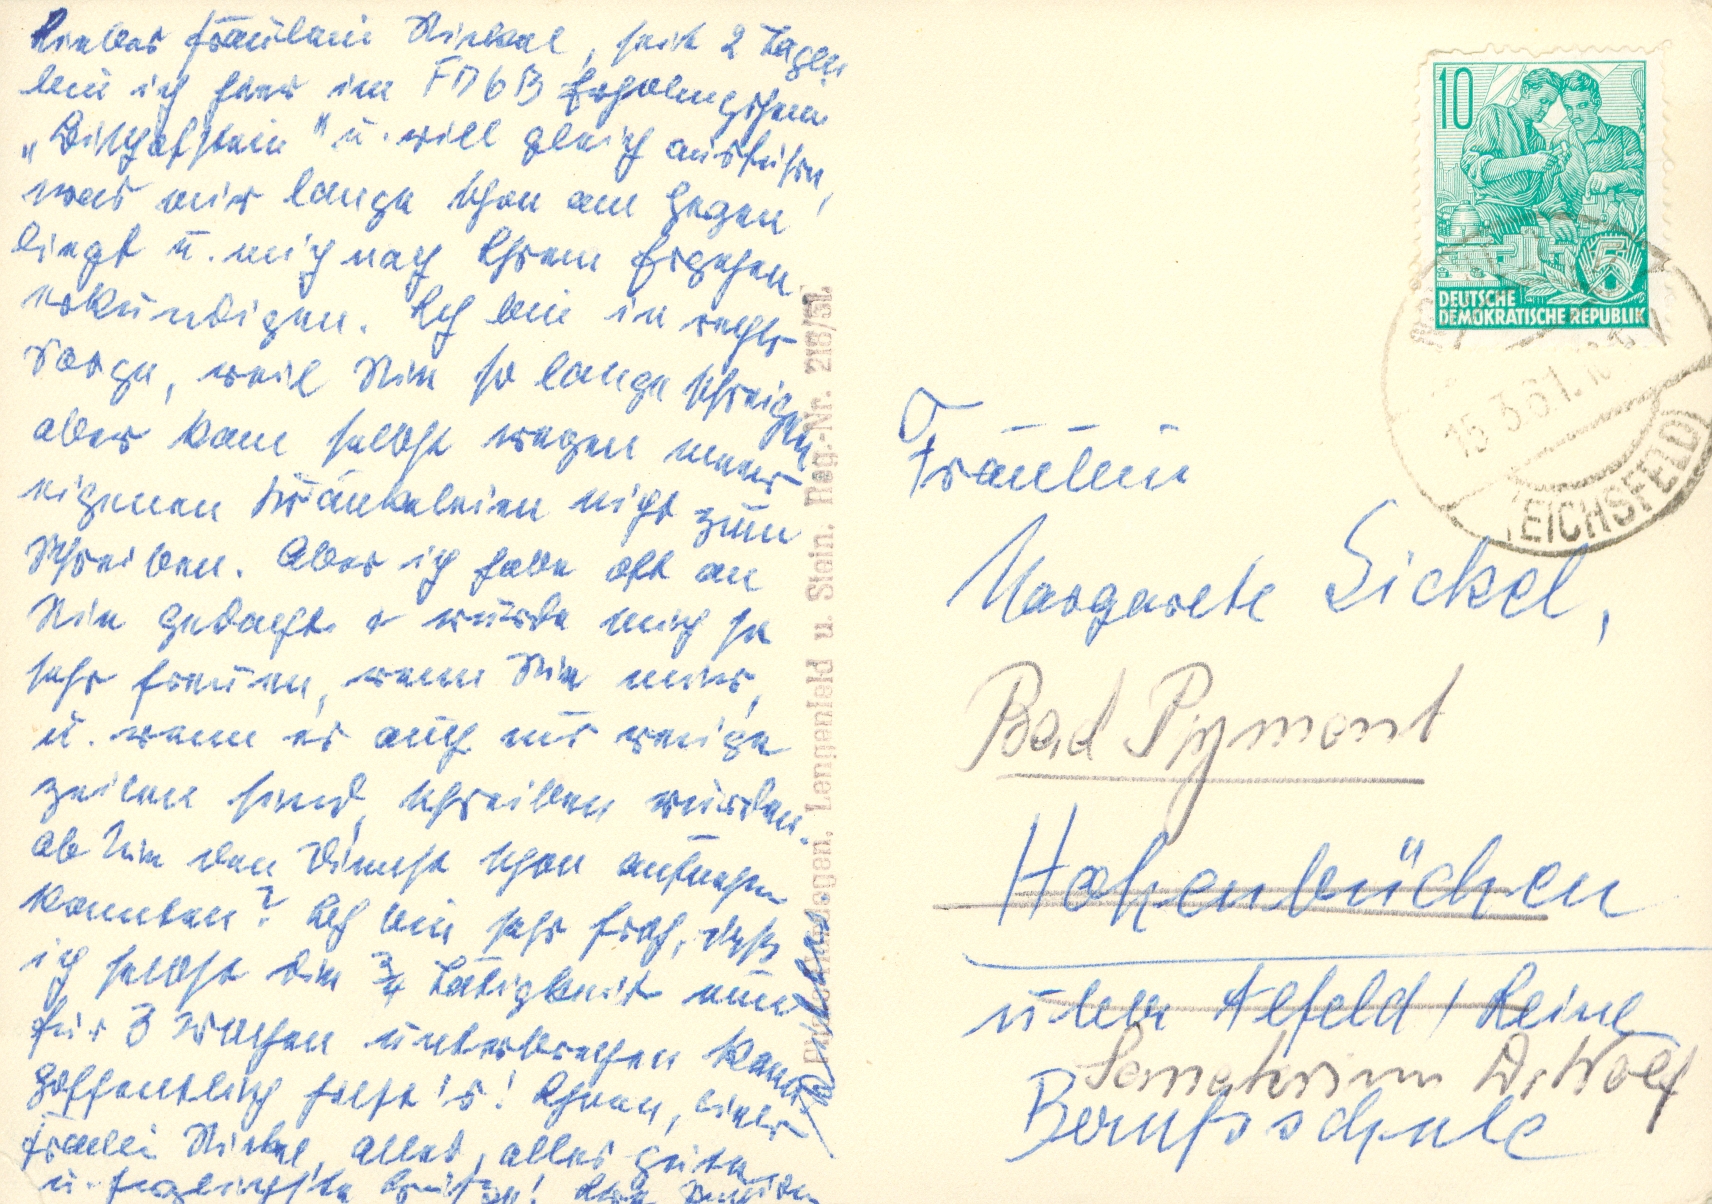 Liebes Fräulein Sickel, seit 2 Tagen
bin ich hier im FDGB Erholungsheim
"Bischofstein" u. will gleich ausführen,
was mir lange schon am Herzen
liegt u. mich nach Ihrem Ergehen
erkundigen. Ich bin in rechter
Sorge, weil Sie so lange schweigen
aber kam selbst wegen meiner
eigenen Kränkeleien nicht zum
Schreiben. Aber ich habe oft an
Sie gedacht u würde mich so
sehr freuen, wenn Sie mir,
u. wenn es auch nur wenige
Zeilen sind, schreiben würden.
Ob Sie den Dienst schon aufnehmen
konnten? Ich bin sehr froh, daß
ich selbst die 3/4 Tätigkeit nun
für 3 Wochen unterbrechen kann
hoffentlich hilft's! Ihnen, liebes
Fräulein Sickel, alles, alles Gute
u. herzlichste Grüße! Ihre
Lengenfeld u. Stein. Reg.-Nr. 218/51
10
DEUTSCHE
DEMOKRATISCHE REPUBLIK
15.3.61
EICHSFELD
Fräulein
Margarete Sickel,
Bad Pyrmont
Hohenbüchen
über Alfeld / Leine
Sanatorium Dr. Wolf
Berufsschule